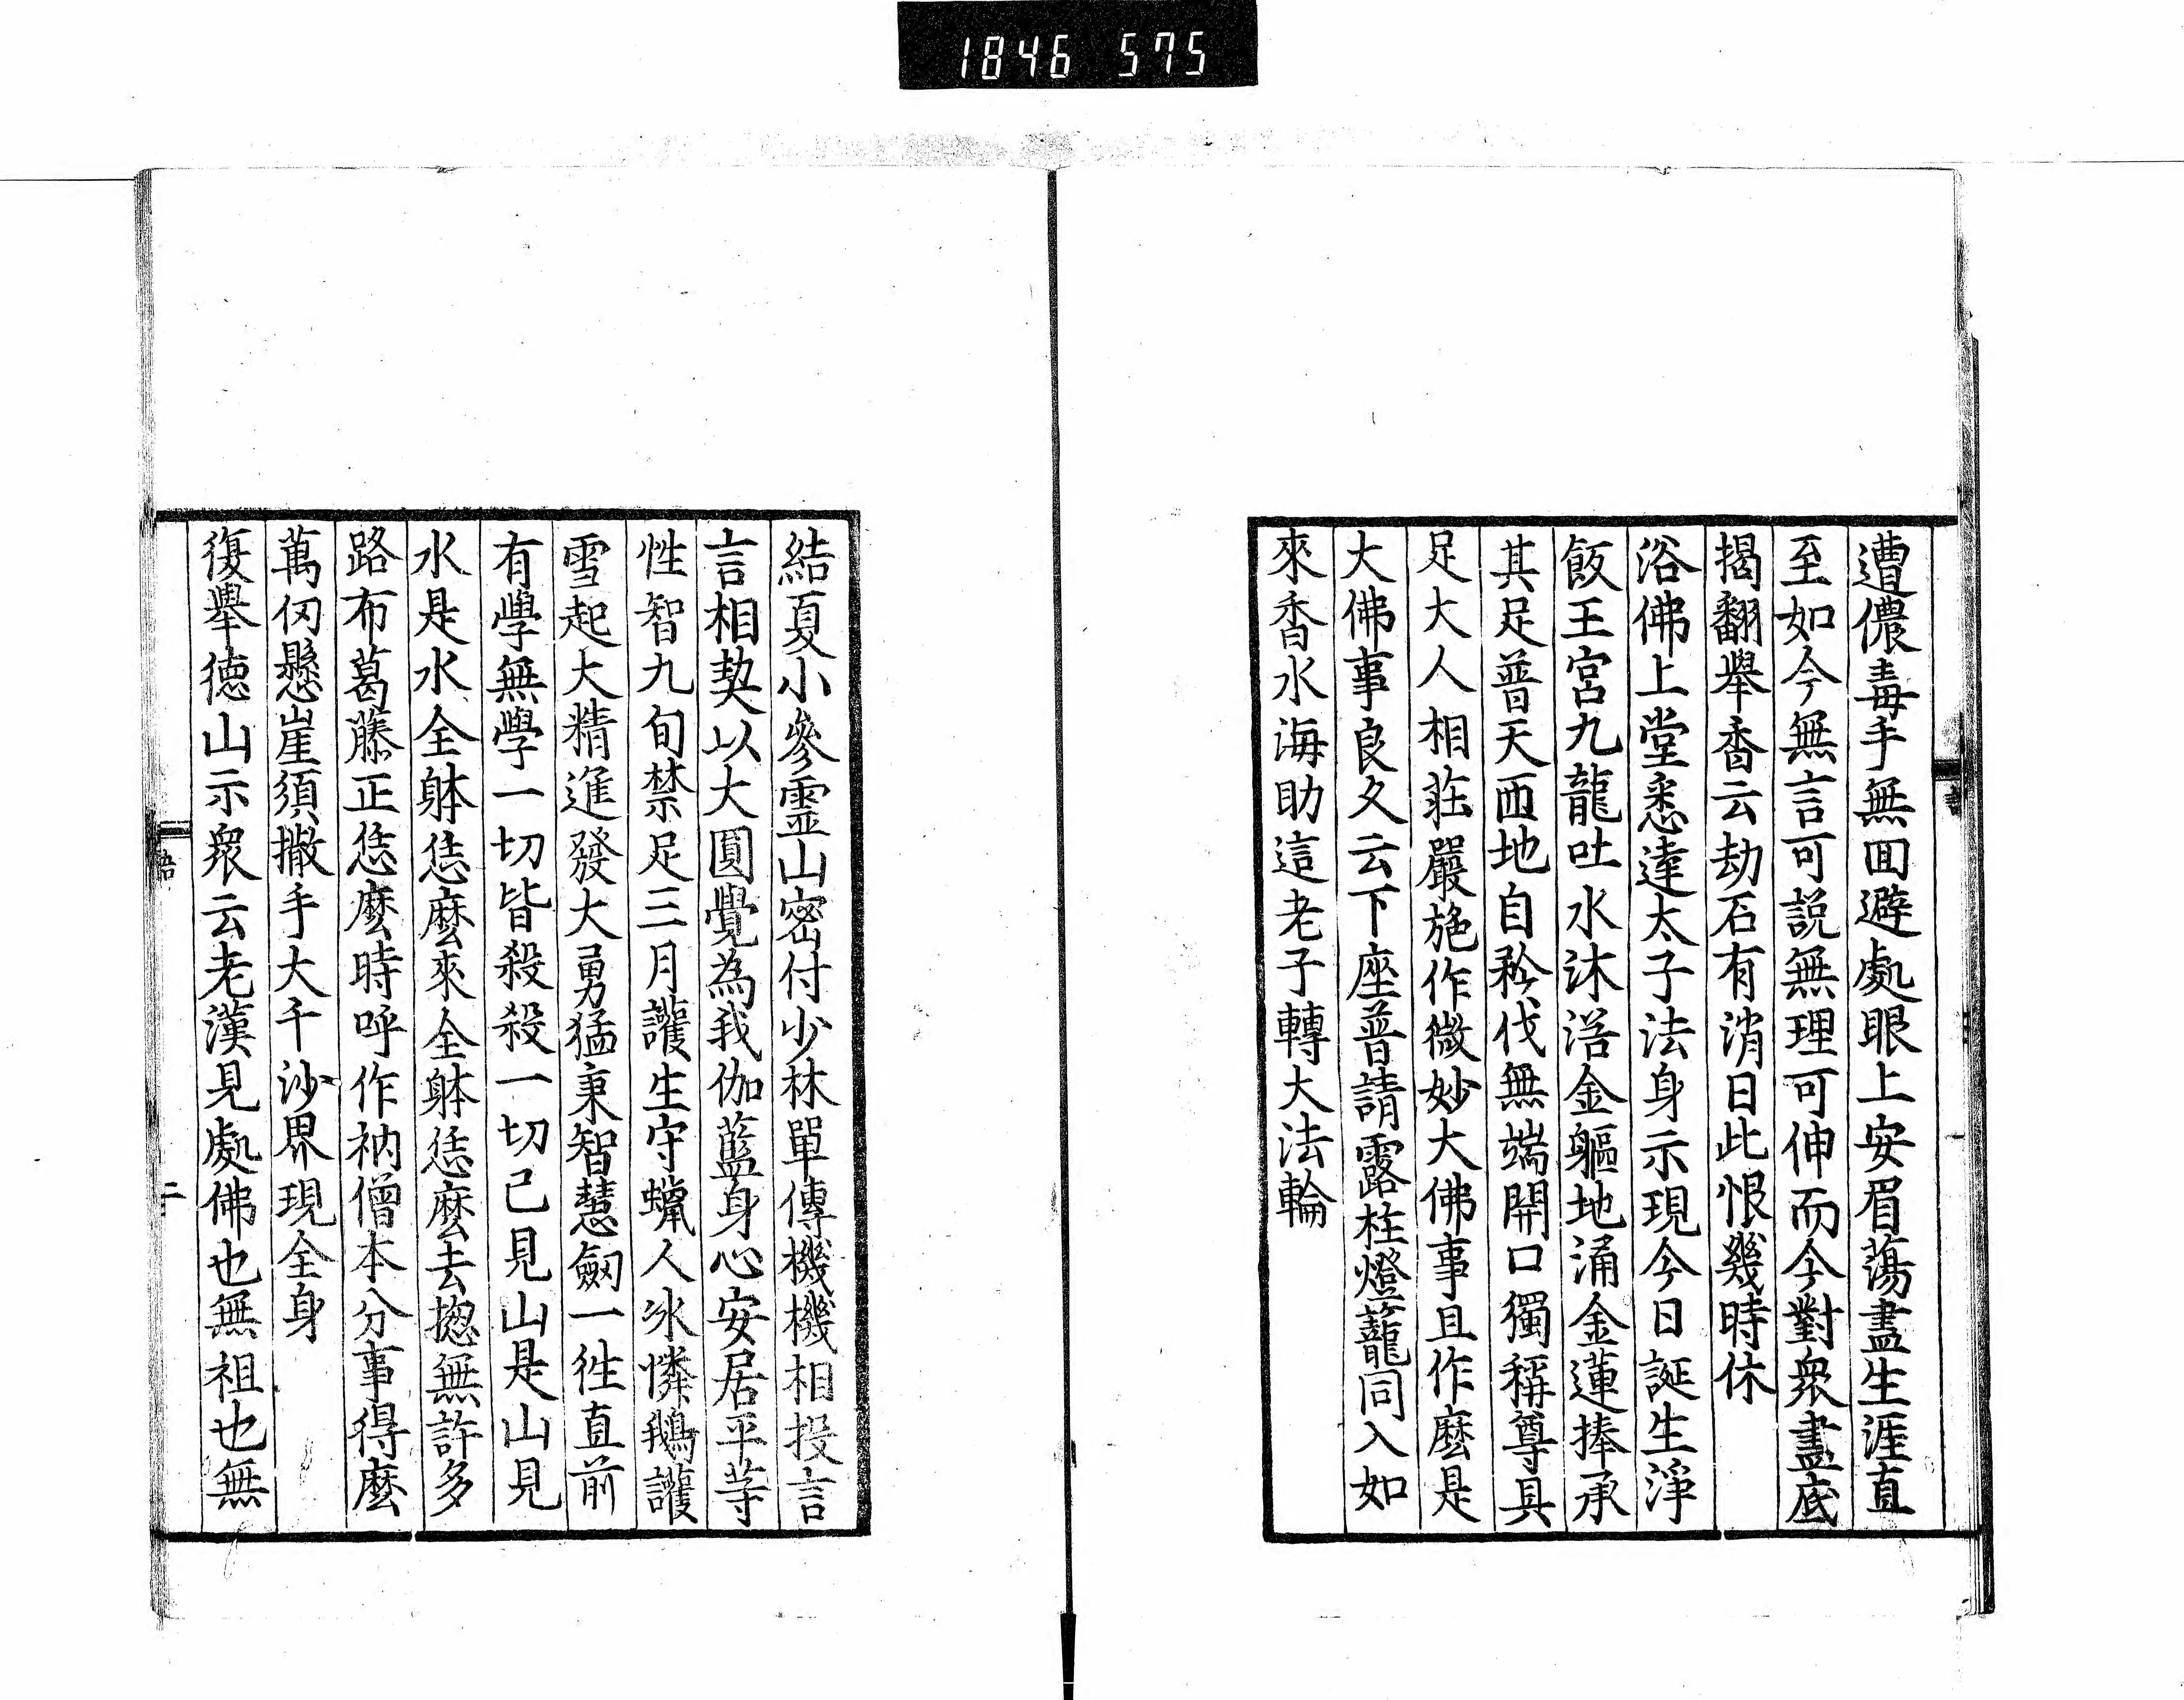 1846 575
遭儂毒手無回避處眼上安眉蕩盡生涯直
至如今無言可說無理可伸而今對衆盡底
揭翻舉香云劫石有消日此恨幾時休
浴佛上堂悉達太子法身示現今日誕生淨
飯王宮九龍吐水沐浴金軀地涌金蓮捧承
其足普天匝地自矜伐無端開口獨稱尊具
足大人相莊嚴施作微妙大佛事且作麼是
大佛事良久云下座普請露柱燈蘢同入如
來香水海助這老子轉大法輪
結夏小參靈山密付少林單傳機機相投言
言相契以大圓覺為我伽藍身心安居平等
性智九旬禁足三月護生守蠟人氷憐鵝護
雪起大精進發大勇猛秉智慧劔一徃直前
有學無學一切皆殺殺一切已見山是山見
水是水全躰恁麼來全躰恁麼去揔無許多
路布葛藤正恁麼時呼作衲僧本分事得麼
萬仞懸崖須撒手大千沙界現全身
復舉德山示衆云老漢見處佛也無祖也無
語
二